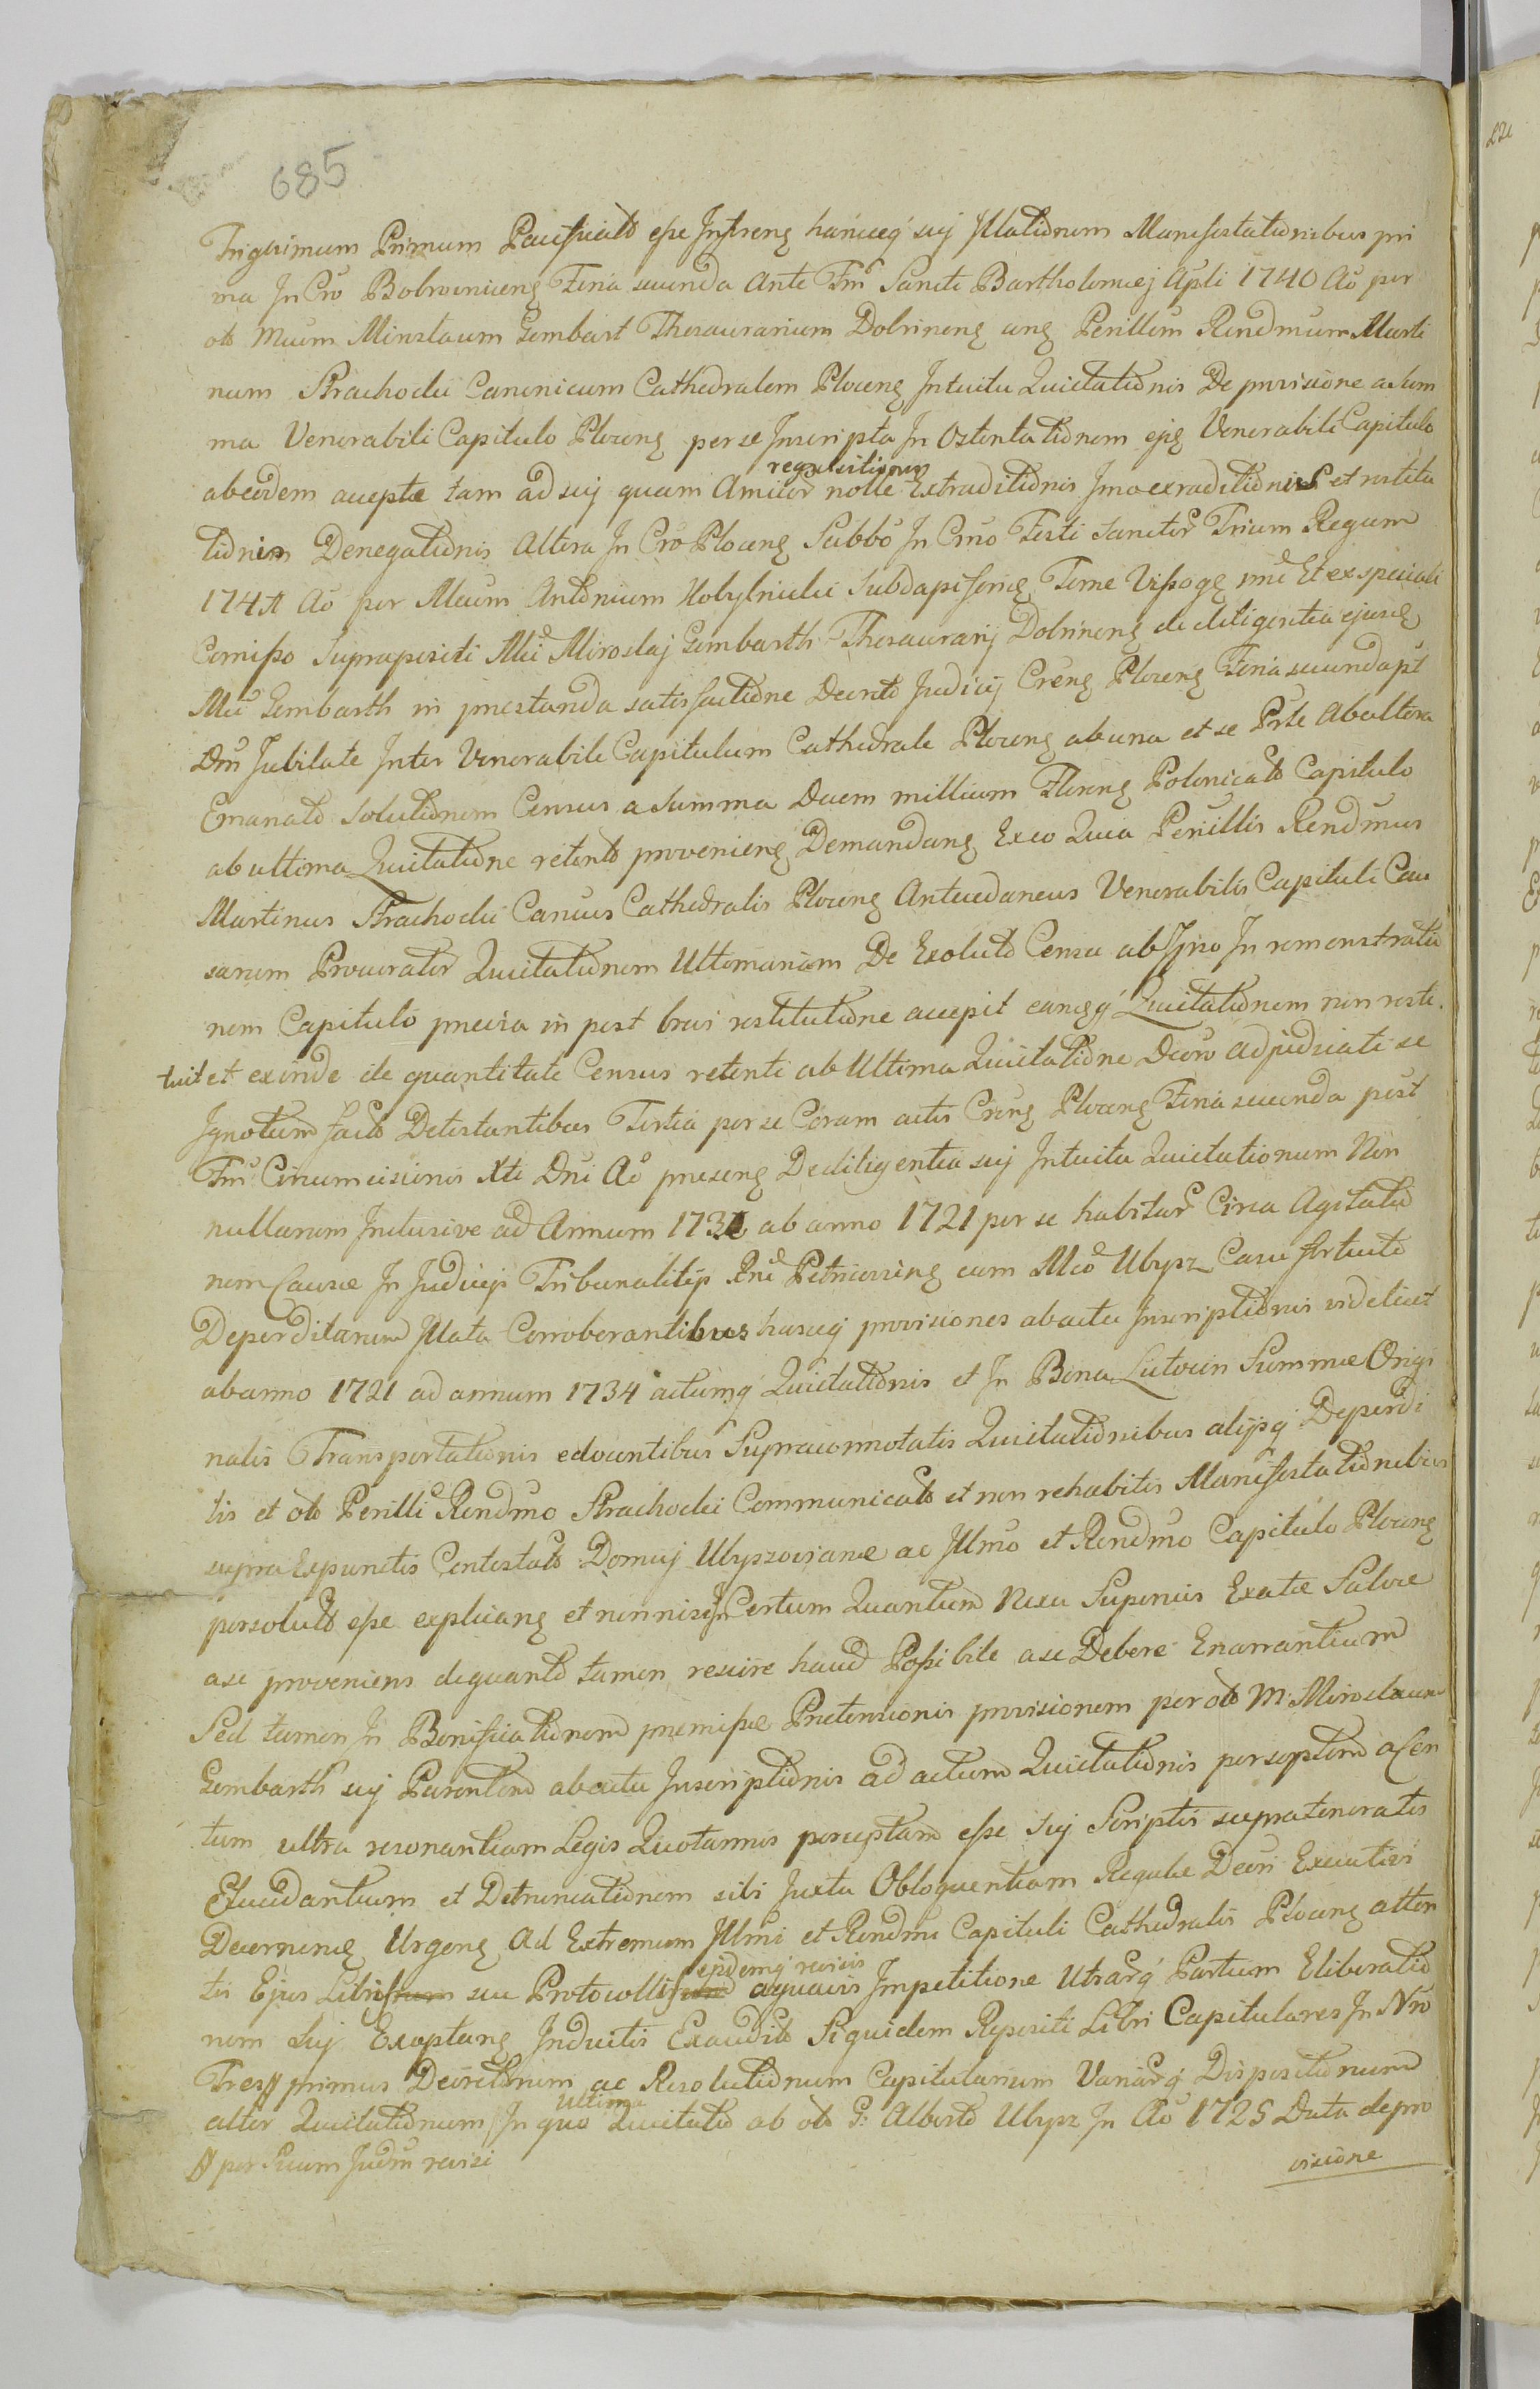 685
Trigesimum Primum Pacificato esse Inferens hancceq́ suj Illationem Manifestationibus pri
ma In Cro Bobrovnicens Feria secunda Ante Fm Sancti Bartholomej Apli 1740 Ao per
olo Mcum Miroslaum Gembart Thesaurarium Dobrinens ang Perillem Rendmum Marti
num Strachocki Canonicum Cathedralem Plocens Intuitu Quietationis De provisione a sum
ma Venerabili Capitulo Plocens per se Inscripta In Ostentationem ejs Venerabili Capitulo
ab eodem acceptæ tam ad suj quam Amicor requisitionem nolle Extraditionis Imo exraditionis et restitu
tionis Denegationis Altera In Cro Plocens Sabbo In Crno Festi Sanctor Trium Regum
174 Ao per Mcum Antonium Kobylnicki Subdapiferus Terræ Vissogs Et ex speciali
Comisso Suprapositi Mci Miroslaj Gembarth Thesaurarij Dobrinens de diligentia ejusd
Mci Gembarth in præstanda satisfactione Decreto Judicij Crens Plocens Feria secunda pt
Dm Jubilate Inter Venerabile Capitulum Cathedrale Plocens ab una et se Prte Ab altera
Emanato solutionem Census a Summa Decem millium Florens Polonicalo Capitulo
ab ultima Quietatione retento proveniens Demandans Ex eo Quia Perillis Rendmus
Martinus Strachocki Cancus Cathedralis Plocens Antecedaneus Venerabilis Capituli Cau
sarum Procurator Quietationem Ultimariam De Exoluto Censu ab Ipso In remonstratio
nem Capitulo præcisa in post brevi restitutione accepit eamqq́ Quietationem non resti
tuit et exinde de quantitate Census retenti ab Ultima Quietatione Decro adjudicati se
Ignotum facto Detestantibus Tertia per se Coram actis Crens Plocens Feria secunda post
Fm Circumcisionis Xti Dni Ao præsens De diligentia suj Intuitu Quietationum Non
nullarum Inclusive ad Annum 173 ab anno 1721 per se habitar Circa Agitatio
nem Causæ In Judicijs Tribunalitijs Rni Petricoviens cum Mco Ubysz Casu fortuito
Deperditarum Illata Corroborantibus hasceq́ provisiones ab actu Inscriptionis videlicet
ab anno 1721 ad annum 1734 actumq́ Quietationis et In Bona Lutocin Summæ Origi
nalis Transportationis edocentibus Supraconnotatis Quietationibus alijsq́ Deperdi
tis et olo Perilli Rendmo Strachocki Communicato et non rehabitis Manifestationibus
supra Expunctis Contestato Domuj Ubyszovianæ ac Illmo et Rendmo Capitulo Plocens
persoluto esse explicans et non nisi In Certum Quantum Nexu Superius Exatæ Salvæ
a se proveniens de quanto tamen rescire haud Possibile a se Debere Enarrantium
Sed tamen In Bonificationem præmissæ Prætensionis provisionem per olo M: Miroslaum
Gembarth suj Parentem ab actu Inscriptionis ad actum Quietationis per septem a Cen
tum ultra resonantiam Legis Quotannis perceptam esse suj Scriptis supratenoratis
Elucidantium et Detruncationem sibi Juxta Obloquentiam Regulæ Decri Executivi
Decernens Urgens Ad Extremum Illmi et Rendmi Capituli Cathedralis Plocens atten
tis Ejus Libris seu Protocollis ejsdemq́ revisis aquavis Impetitione Utrarq́ Partum Eliberatio
nem Suj Exoptans Inductis Exaudito Siquidem Repositi Libri Capitulares In Nro
Tres # primus Decretorum ac Resolutionum Capitularium Variarq́ Dispositionum
alter Quietationum In quo Ultima Quietatio ab olo G: Alberto Ubysz In Ao 1725 Data de pro
# per Suum Judm revisi
visione